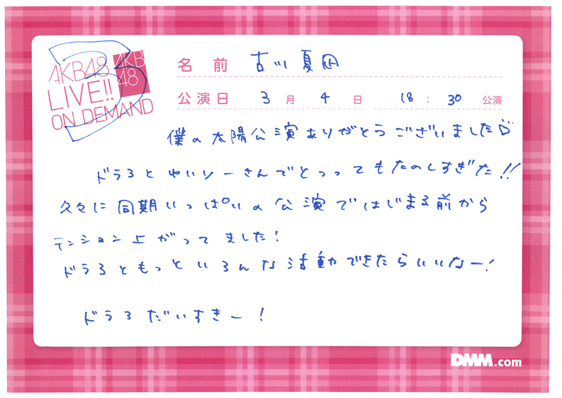 AKB48
LIVE!!
ON DEMAND
AKB
48
名前 古川夏凪
公演日 3月4日 18:30 公演
僕の太陽公演ありがとうございました♡
ドラ3とゆいりーさんでとってもたのしすぎた!!
久々に同期いっぱいの公演ではじまる前から
テンション上がってました!
ドラ3ともっといろんな活動できたらいいなー!
ドラ3だいすきー!
DMM.com